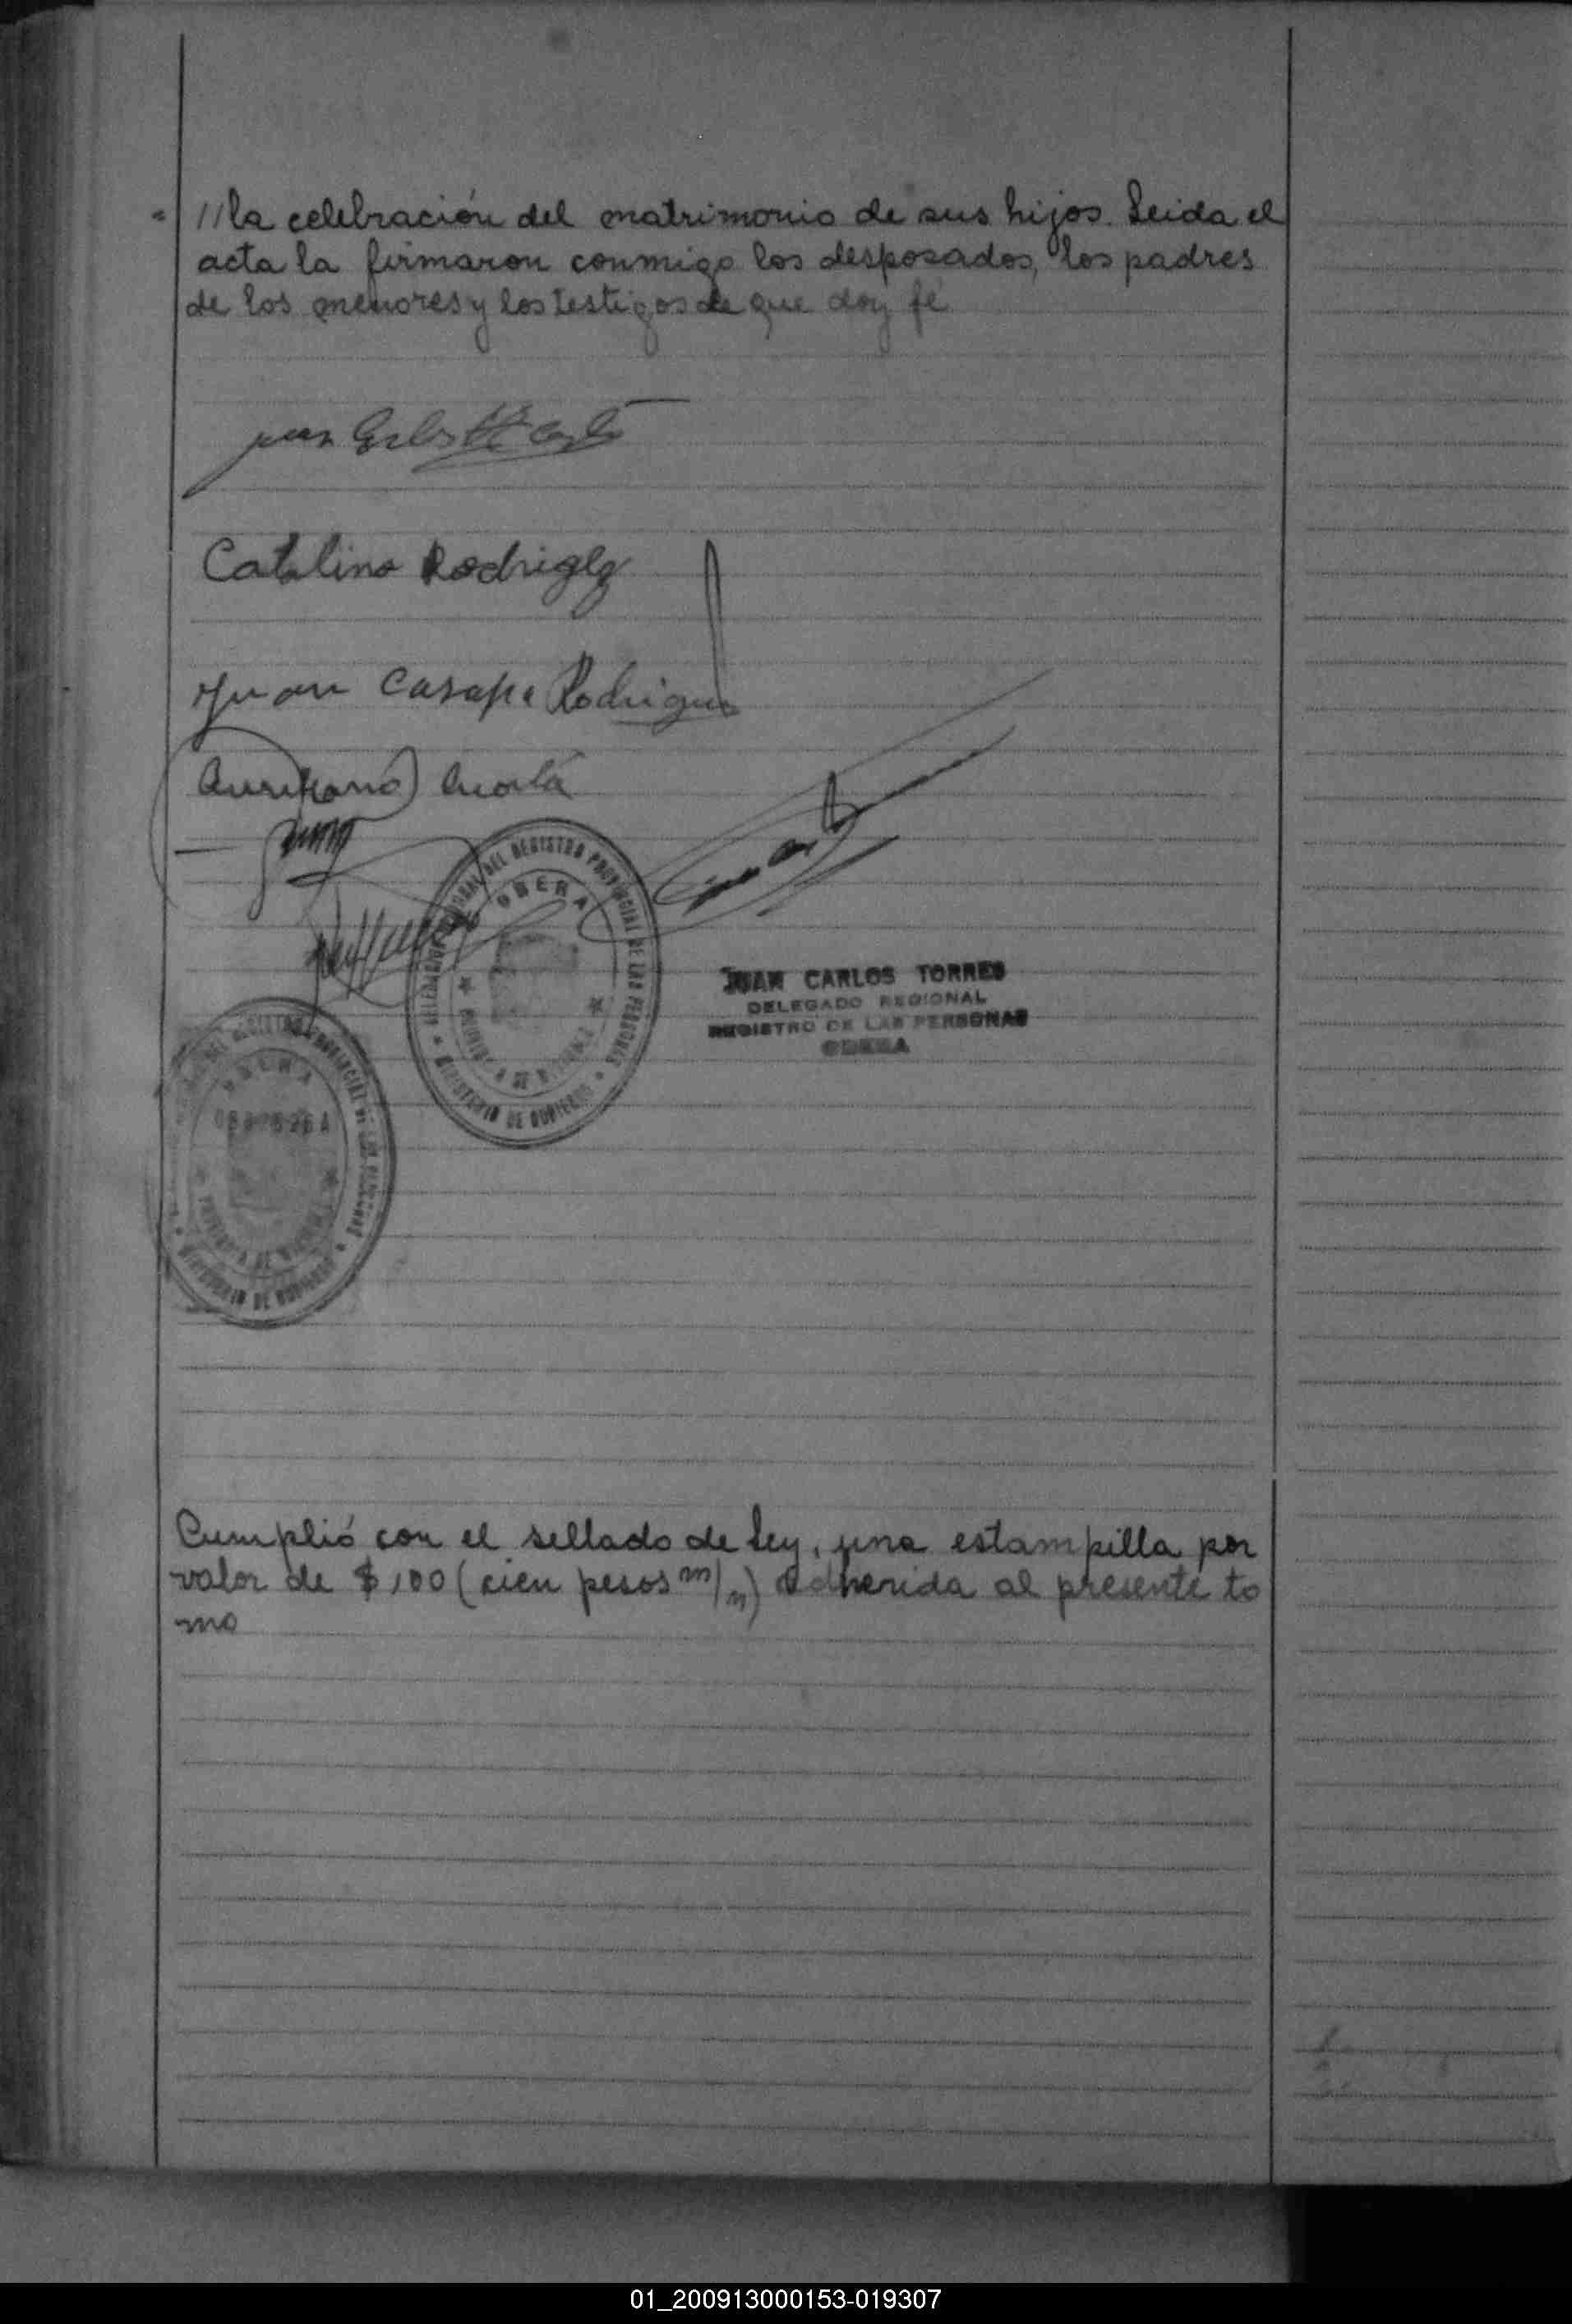 //la celebración del matrimonio de sus hijos. Leida el
acta la firmaron conmigo los desposados, los padres
de los menores y los testigos de que doy fé
Catalino Rodrigez
Juan Casape Rodriguez
DELEGACION REGIONAL DEL REGISTRO PROVINCIAL DE LAS PERSONAS
OBERA
PROVINCIA DE MISIONES
MINISTERIO DE GOBIERNO
JUAN CARLOS TORRES
DELEGADO REGIONAL
REGISTRO DE LAS PERSONAS
OBERA
DEL REGISTRO PROVINCIAL DE LAS PERSONAS
OBERA
PROVINCIA DE MISIONES
MINISTERIO DE GOBIERNO
Cumplió con el sellado de Ley, una estampilla por
valor de $ 100 (cien pesos m/n) adherida al presente to
mo
01_200913000153-019307